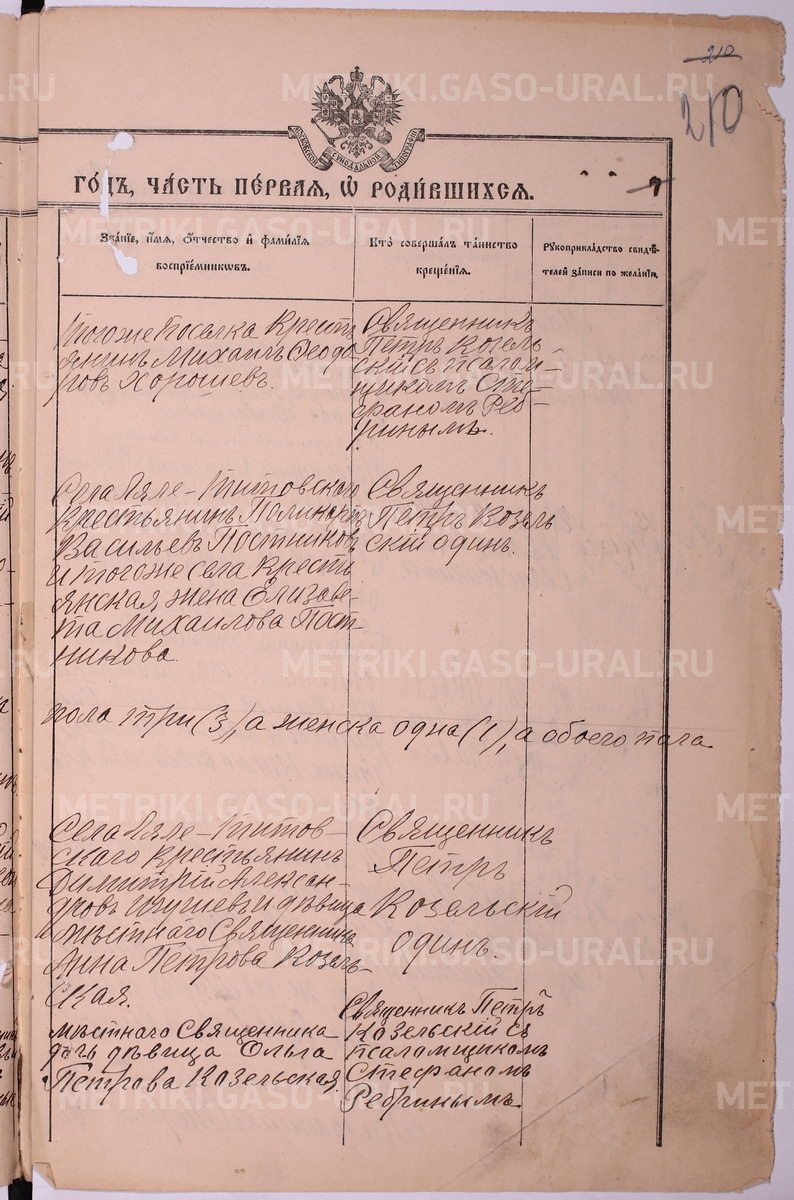 210
210
МОСКОВСКОЙ СѴНОДАЛЬНОЙ ТИПОГРАФІИ
ГО́ДЪ, ЧА́СТЬ ПЕ́РВАЯ, Ѡ҆ РОДИ́ВШИХСЯ.
Зва́нїе, и҆́мя, ѻ҆́тчество и҆ фами́лїя
воспрїе́мниковъ.
Кто̀ соверша́лъ та́инство
креще́нїя.
Рꙋкоприкла́дство свидѣ́-
телей за́писи по жела́нїю.
Тогоже Поселка Кресть
янинъ Михаилъ Ѳеодо
ровъ Хорошевъ.
Священникъ
Петръ Козель-
скій съ псалом-
щикомъ Сте-
фаномъ Реб-
ринымъ.
Села Ляле-Титовскаго
Крестьянинъ
Васильевъ Постниковъ
и тогоже села Кресть
янская жена Елизаве-
та Михаилова Пост-
никова.
Священникъ
Петръ Козель
скій одинъ.
пола три (3), а женска одна (1), а обоего пола
Села Ляле-Титов-
скаго Крестьянинъ
Димитрій Алексан-
дровъ и дѣвица
мѣстнаго Священника
Анна Петрова Козель-
ская.
Священникъ
Петръ
Козельскій
одинъ.
мѣстнаго Священника
дочь дѣвица Ольга
Петрова Козельская
Священникъ Петръ
Козельскій съ
псаломщикомъ
Стефаномъ
Ребринымъ
METRIKI.GASO-URAL.RU